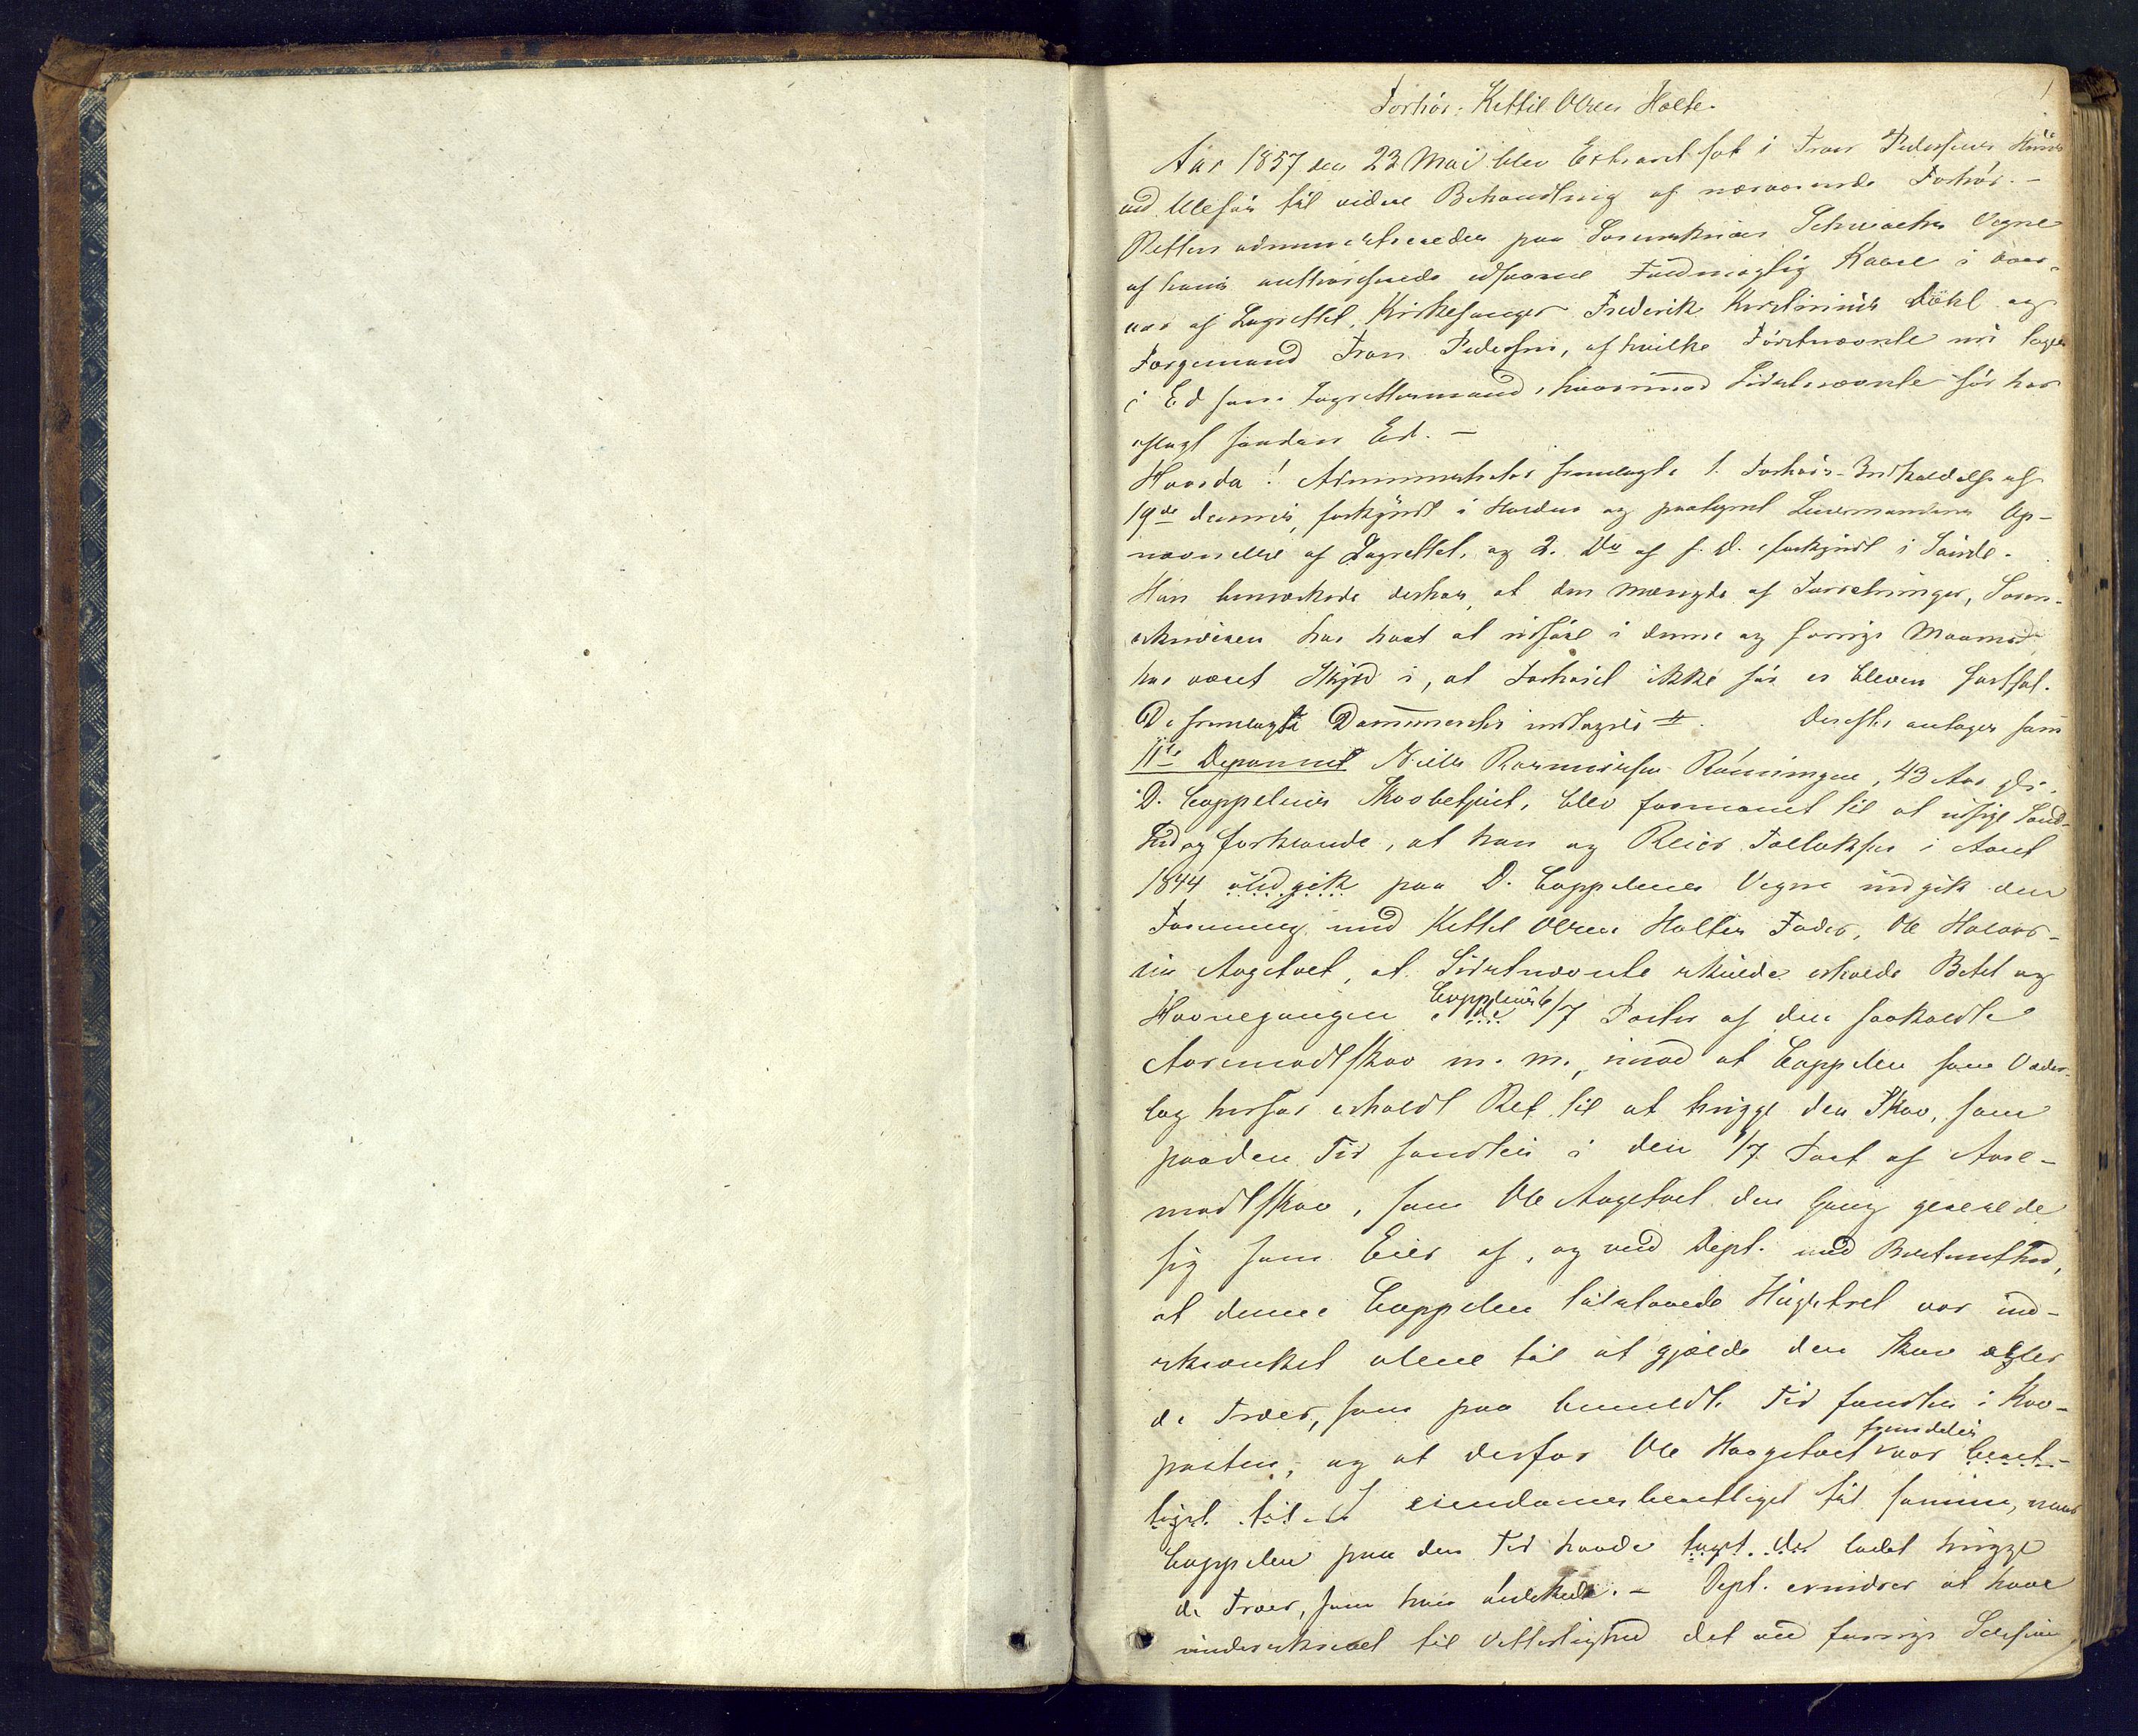 1
Forhör: Kettil Olsen Holte.
Aar 1857 den 23 Mai blev Extraret sat i Iver Pedersens Huus
ved Ulefos til videre Behandling af nærværende Forhör. –
Retten administreredes paa Sorenskriver Schwachs Vegne
af hans authoriserede edsvorne Fuldmægtig Kaare i Over-
vær af Lagrettet, Kirkesanger Frederik Kristinius Dohl og
Færgemand Iver Pedersen, af hvilke Förstnævnte nu toges
i Ed som Lagrettesmand, hvorimod Sidstnævnte för har
aflagt saadan Ed. –
Hvorda! Administrator fremlagde 1. Forhörs-Indkaldelse af
19de dennes, forkyndt i Holden og paategnet Lensmandens Op-
nævnelse af Lagrettet, og 2. Do af s. D. forkyndt i Saude.
Han bemærkede derhos, at den Mængde af Forretninger, Soren-
skriveren har havt at udføre i denne og forrige Maaned,
har været Skyld i, at Forhöret ikke för er bleven fortsat.
De fremlagte Documenter indtages #. Derefter antages som
11te Deponent Niels Rasmussen Rönningen, 43 Aar gl.,
D. Cappelens Skovbetjent, blev formanet til at udsige Sand-
hed og forklarede, at han og Reier Tallaksen i Aaret
1844 indgik paa D. Cappelens Vegne indgik den
Forening med Kettil Olsen Holtes Fader, Ole Halvor-
sen Aagetvet, at Sidstnævnte skulde erholde Betet og
Havnegangen i de Cappelens 6/7 Parter af den saakaldte
Aasmodtskov m. m., imod at Cappelen som Veder-
lag herfor erholdt Ret til at hugge den Skov, som
paa den Tid fandtes i den 1/7 Part af Aase-
modtskov, som Ole Aagetvet den Gang gererede
sig som Eier af, og ved Dept. med Bestemthed,
at denne Cappelen tilstaaede Hugstret var ind-
skrænket alene til at gjælde den Skov eller
de Træer, som paa bemeldte Tid fandtes i Skov-
parten, og at derfor Ole Haagetvet fremdeles var beret-
tiget til eiendomsberettiget til samme, naar
Cappelen paa den Tid havde taget der ladet hugge
de Træer, som han önskede. – Dept. erindrer at have
underskrevet til Vitterlighed det ved forrige Session